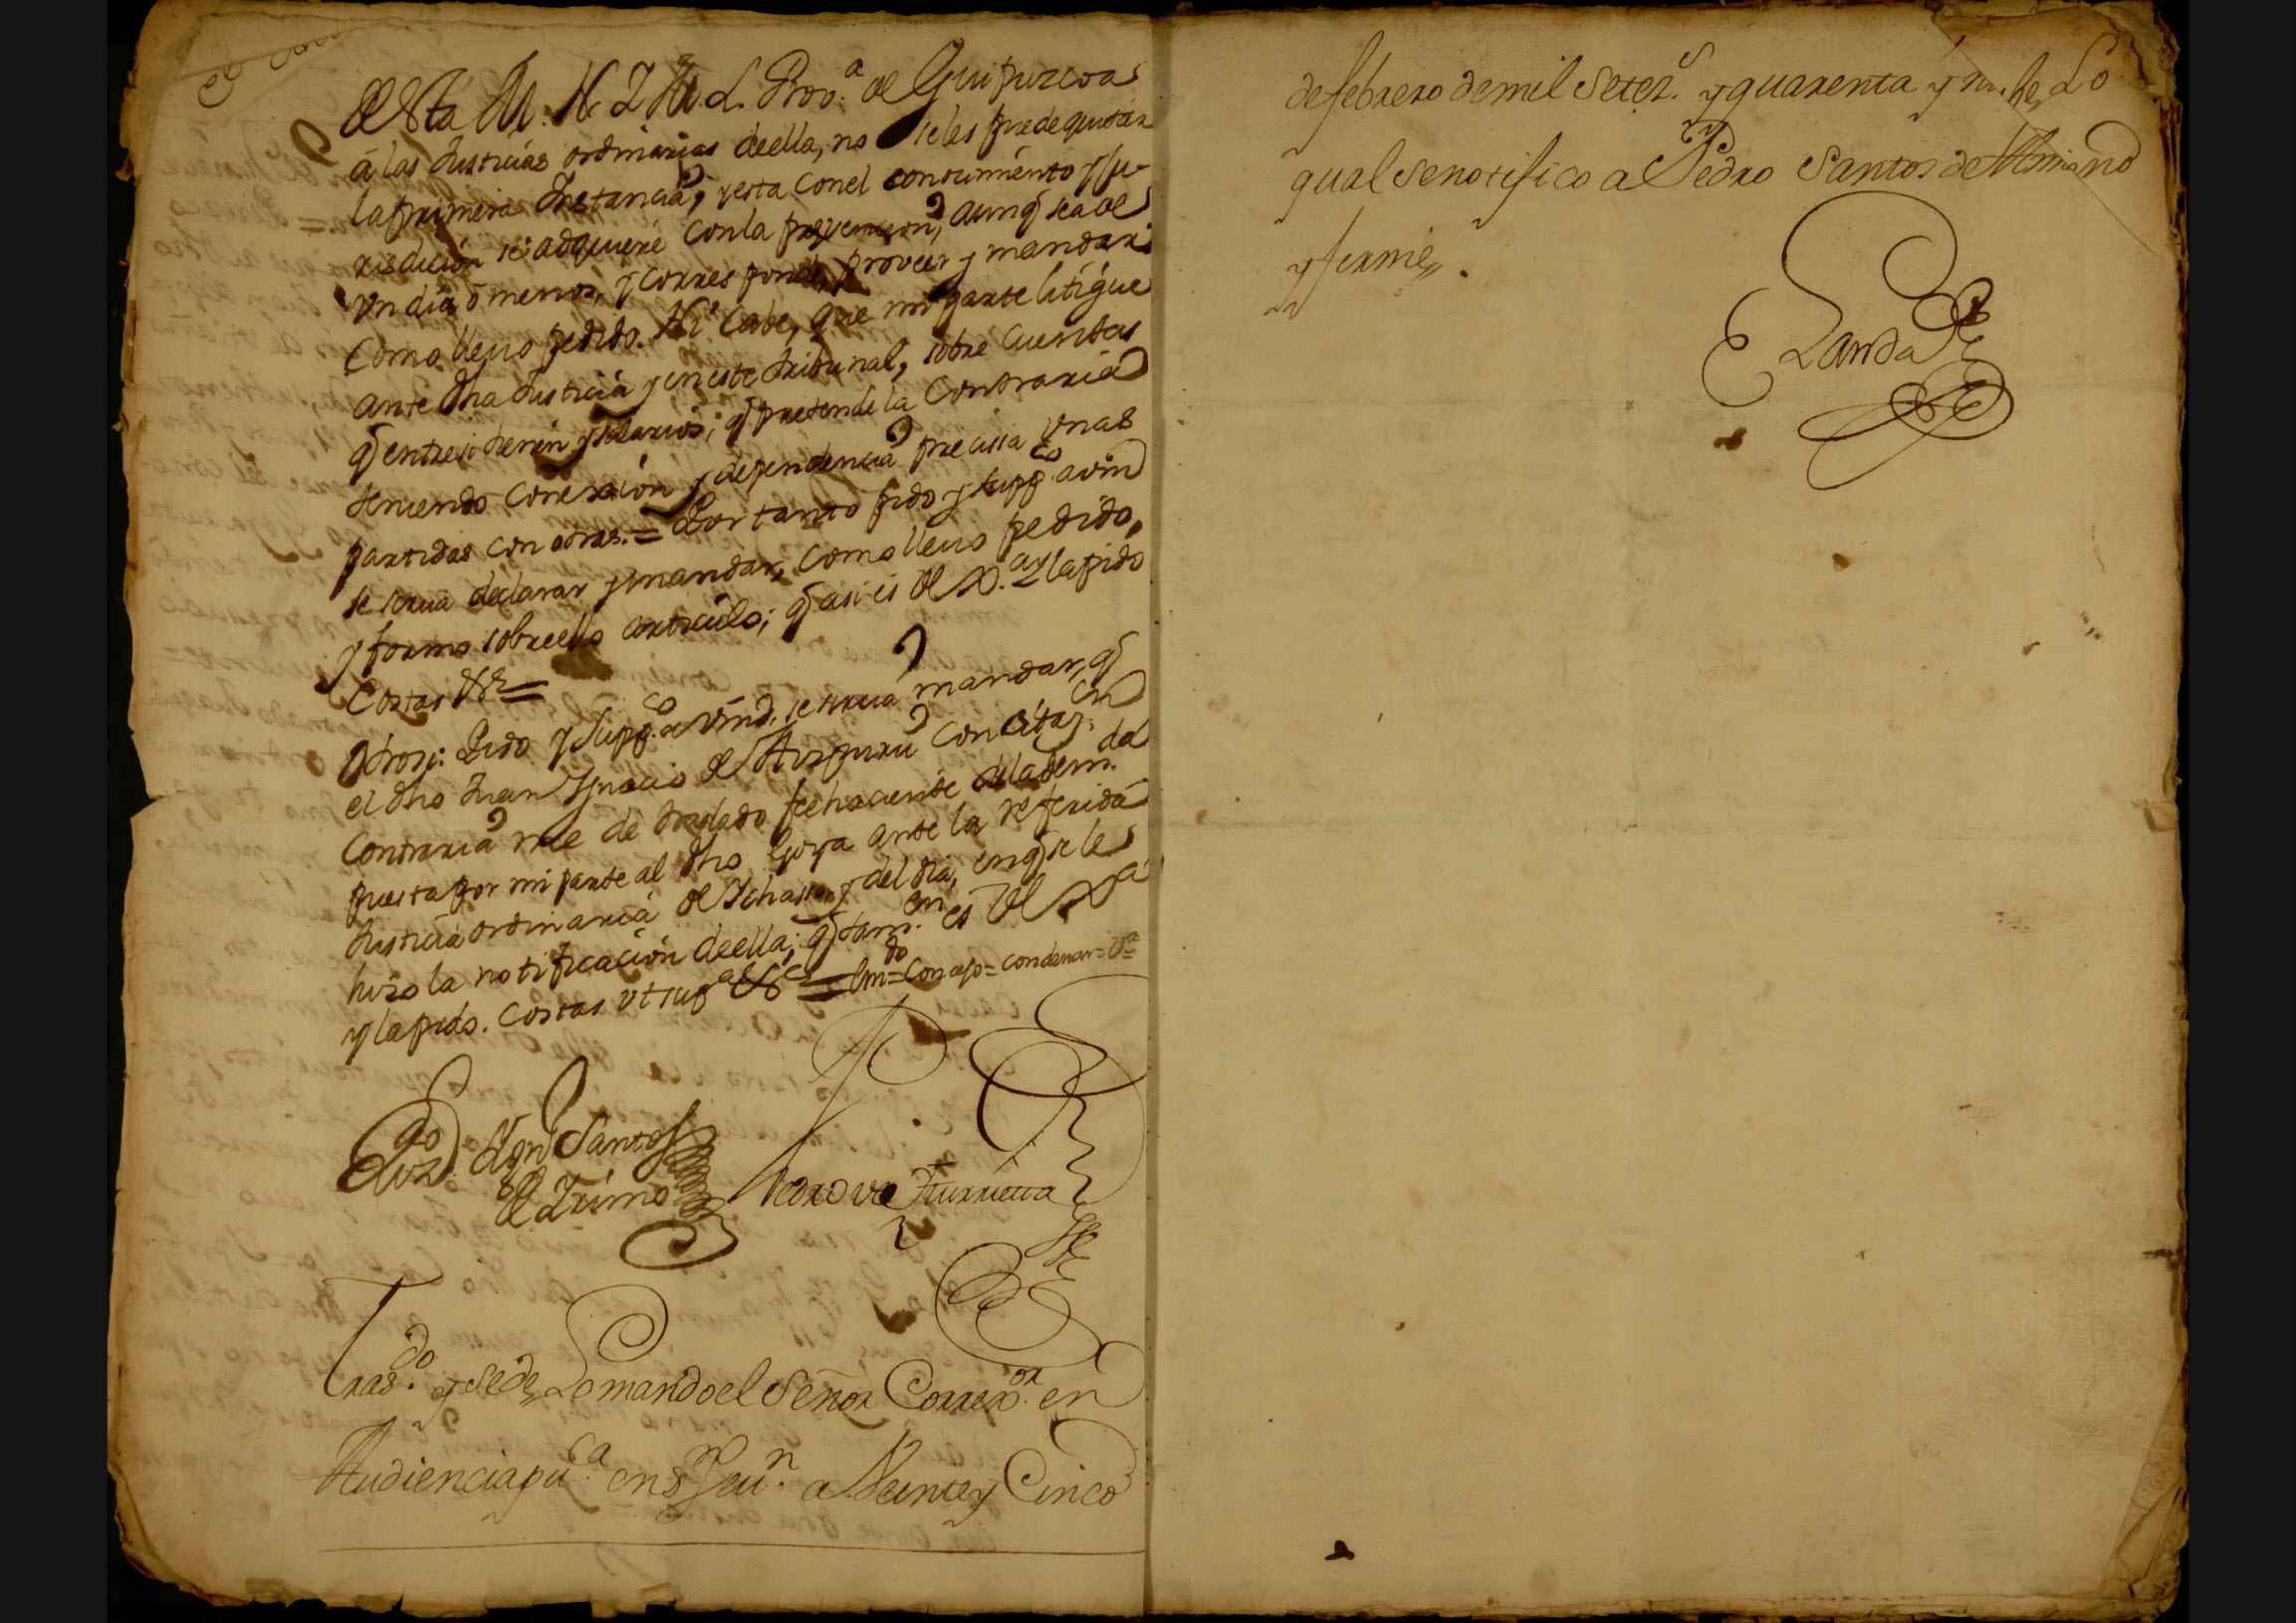 de esta M. N. Y M. L. Prov.ª de Guipuzcoa
á las Justicias ordinarias deella, no se les puede quitar
la primera Instancia, y esta conel conocimiento y Ju-
risdicion se adquiere con la prevencion, aunq̃ sea de
un dia ó menos, y corresponde, proveer y mandar
como llevo pedido. Ni cabe, que mi parte litigue
ante dha Justicia y en este tribunal, sobre cuentas
q̃ entresi tienen y salarios, q̃ pretende la contraria
teniendo conexion y dependencia precisa unas
partidas con otras. = Por tanto pido y supp.co a vmd
se sirva declarar y mandar, como llevo pedido,
y formo sobreello articulo; q̃ asi es de Jª. y la pido
Costas &ª =
Otrosi: Pido y supp.co a vmd. se sirva mandar, q̃
el dho Juan Ygnacio de Aizpuru con citaz.on
contraria me de traslado feehaciente dela dem.da
puesta por mi parte al dho Goya ante la referida
Justicia ordinaria de Ychasso, y del dia, enq̃ se le
hizo la notificacion deella; q̃ tam.en es de Jª
y la pido. Costas ut supª &ª = Em.do = Concejo = condenar = Vª
Liz.do Dn Santos
Pedro de Iturrieta
Tras.do y se de, Lo mando el Señor Correx.or en
Audiencia pu.ca en s Seu.n a Veinte y Cinco
de febrero de mil Setez.s y quarenta y Lo
qual se notifico a Pedro Santos de Amiano
y firme,,.
Landa